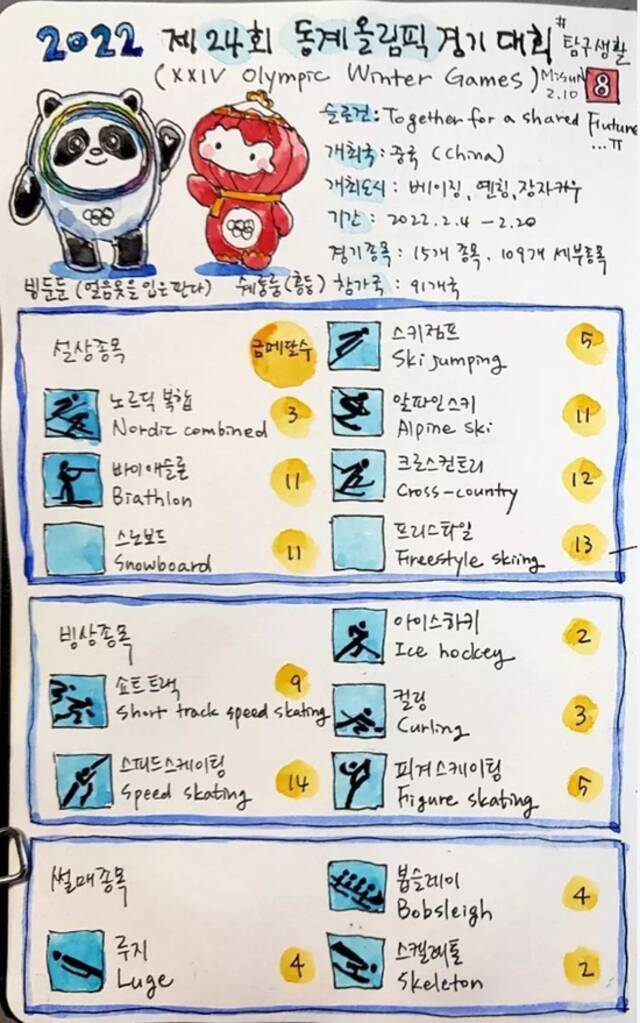 2022 제24회 동계올림픽 경기대회 #탐구생활
(XXIV Olympic Winter Games) Misun 2.10 8
슬로건: Together for a shared Future
...π
개최국: 중국 (China)
개최도시 : 베이징, 옌칭, 장자커우
기간 : 2022.2.4 - 2.20
경기종목 : 15개 종목. 109개 세부종목
빙둔둔 (얼음옷을 입은 판다)
쉐룽룽 (홍등)
참가국 : 91개국
설상종목
금메달수
스키점프 5
Ski jumping
노르딕 복합 3
Nordic combined
알파인스키 11
Alpine ski
바이애슬론 11
Biathlon
크로스컨트리 12
Cross-country
스노보드 11
Snowboard
프리스타일 13
Freestyle skiing
빙상종목
아이스하키 2
Ice hockey
쇼트트랙 9
Short track speed skating
컬링 3
Curling
스피드스케이팅 14
Speed skating
피겨스케이팅 5
Figure skating
썰매종목
봅슬레이 4
Bobsleigh
루지 4
Luge
스켈레톤 2
Skeleton